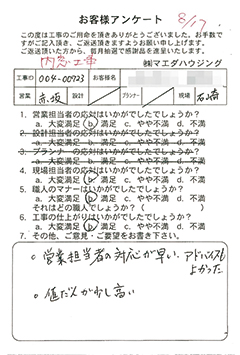 お客様アンケート
8/17
この度は工事のご用命を頂きありがとうございます。お手数で
すがご記入頂き、ご返送頂きますようお願い申し上げます。
ご返送頂いた方から、毎月抽選で感謝品を進呈いたします。
内窓工事
㈱マエダハウジング
工事ID 0054-00923 お客様名
営業 赤坂 設計 プランナー 現場 石崎
1. 営業担当者の応対はいかがでしたでしょうか?
a. 大変満足 b. 満足 c. やや不満 d. 不満
2. 設計担当者の応対はいかがでしたでしょうか?
a. 大変満足 b. 満足 c. やや不満 d. 不満
3. プランナーの応対はいかがでしたでしょうか?
a. 大変満足 b. 満足 c. やや不満 d. 不満
4. 現場担当者の応対はいかがでしたでしょうか?
a. 大変満足 b. 満足 c. やや不満 d. 不満
5. 職人のマナーはいかがでしたでしょうか?
a. 大変満足 b. 満足 c. やや不満 d. 不満
それはどの職人でしょうか?( )
6. 工事の仕上がりはいかがでしたでしょうか?
a. 大変満足 b. 満足 c. やや不満 d. 不満
7. その他、ご意見・ご要望をお書き下さい。
○ 営業担当者の対応が早い。アドバイスも
よかった
○ 値だんが少し高い